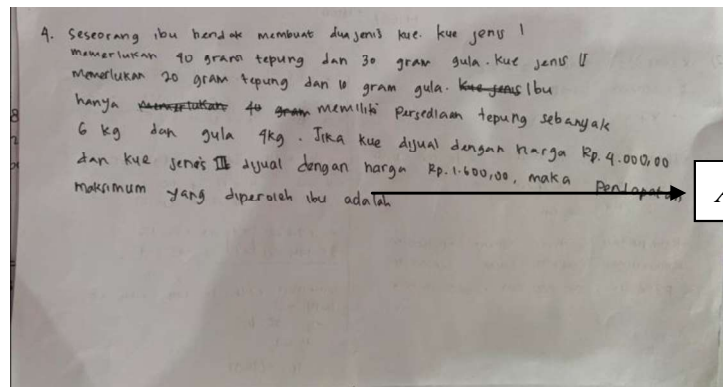 4. Seseorang ibu hendak membuat dua jenis kue. kue jenis I
memerlukan 40 gram tepung dan 30 gram gula. kue jenis II
memerlukan 20 gram tepung dan 10 gram gula. Kue jenis Ibu
hanya memerlukan 40 gram memiliki Persediaan tepung sebanyak
6 kg dan gula 4kg. Jika kue dijual dengan harga Rp. 4.000,00
dan kue jenis II dijual dengan harga Rp. 1.600,00, maka Pendapatan
maksimum yang diperoleh ibu adalah